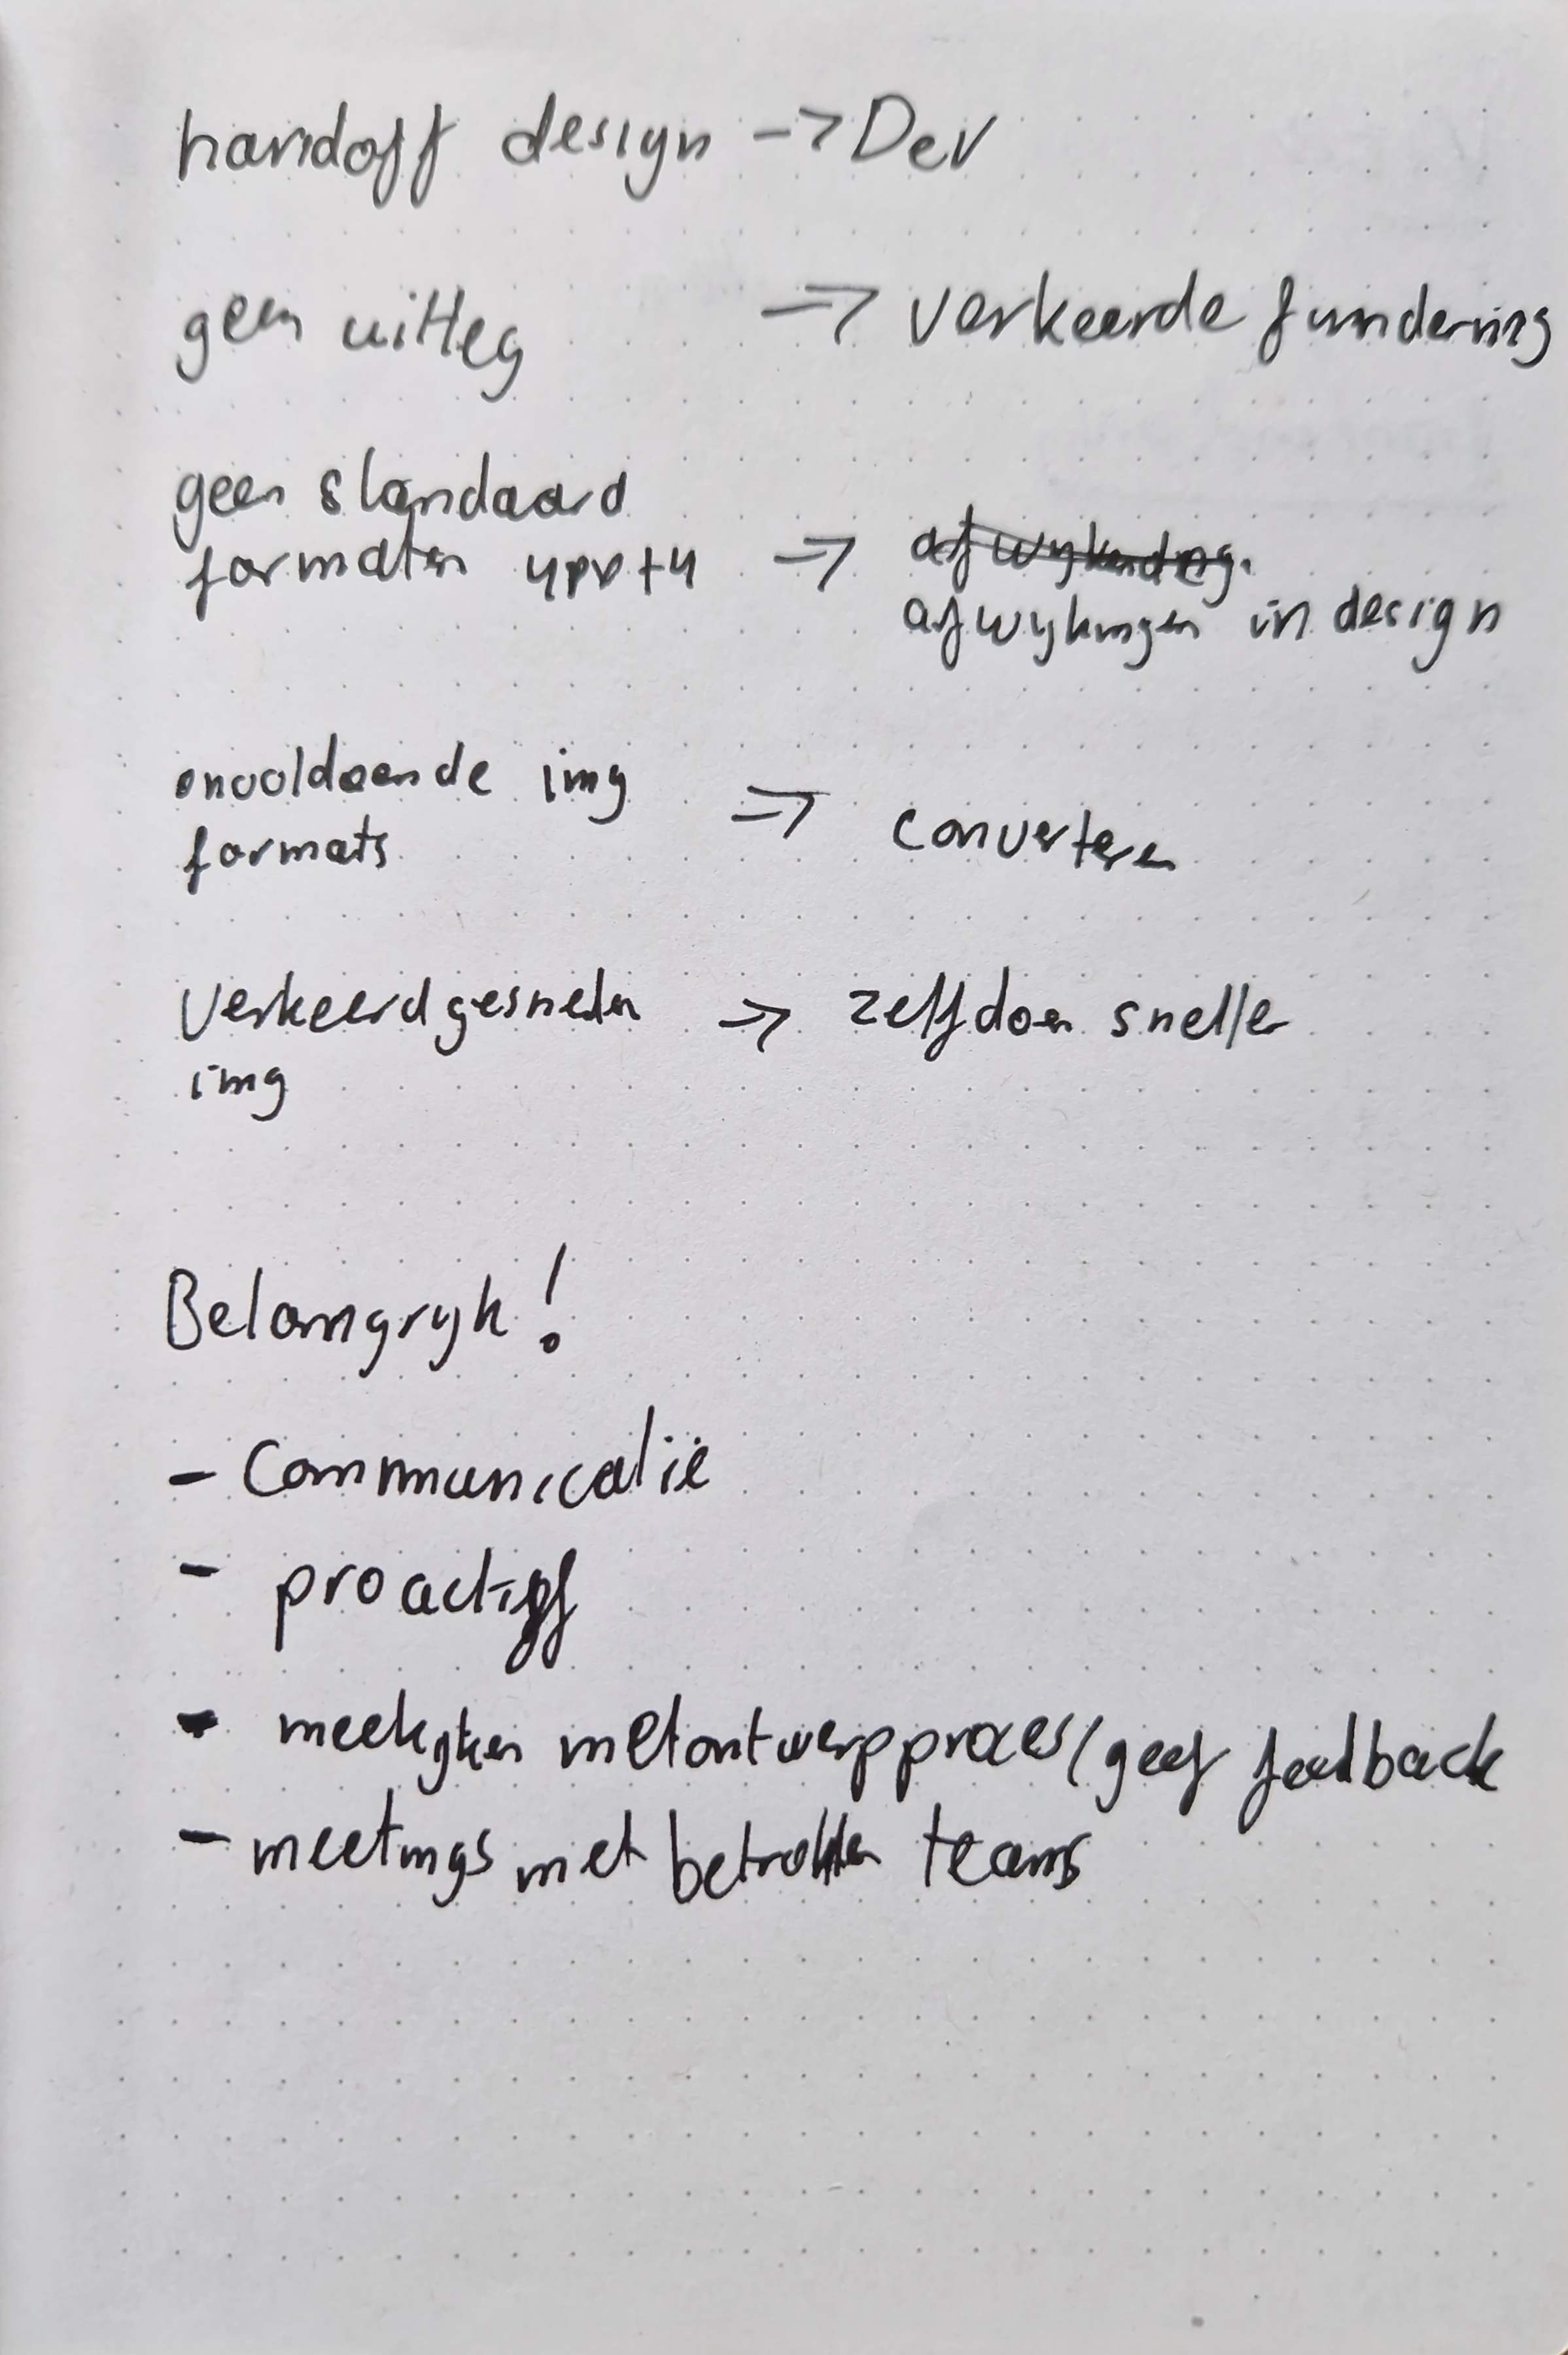 handoff design -> Dev
geen uitleg => verkeerde fundering
geen standaard
formaten 4px+4 => afwijkingen in design
onvoldoende img
formats => converteren
verkeerd gesneden => zelf doen sneller
img
Belangrijk!
- Communicatië
- proactijf
- meekijken met ontwerpproces/geef feedback
- meetings met betrokken teams